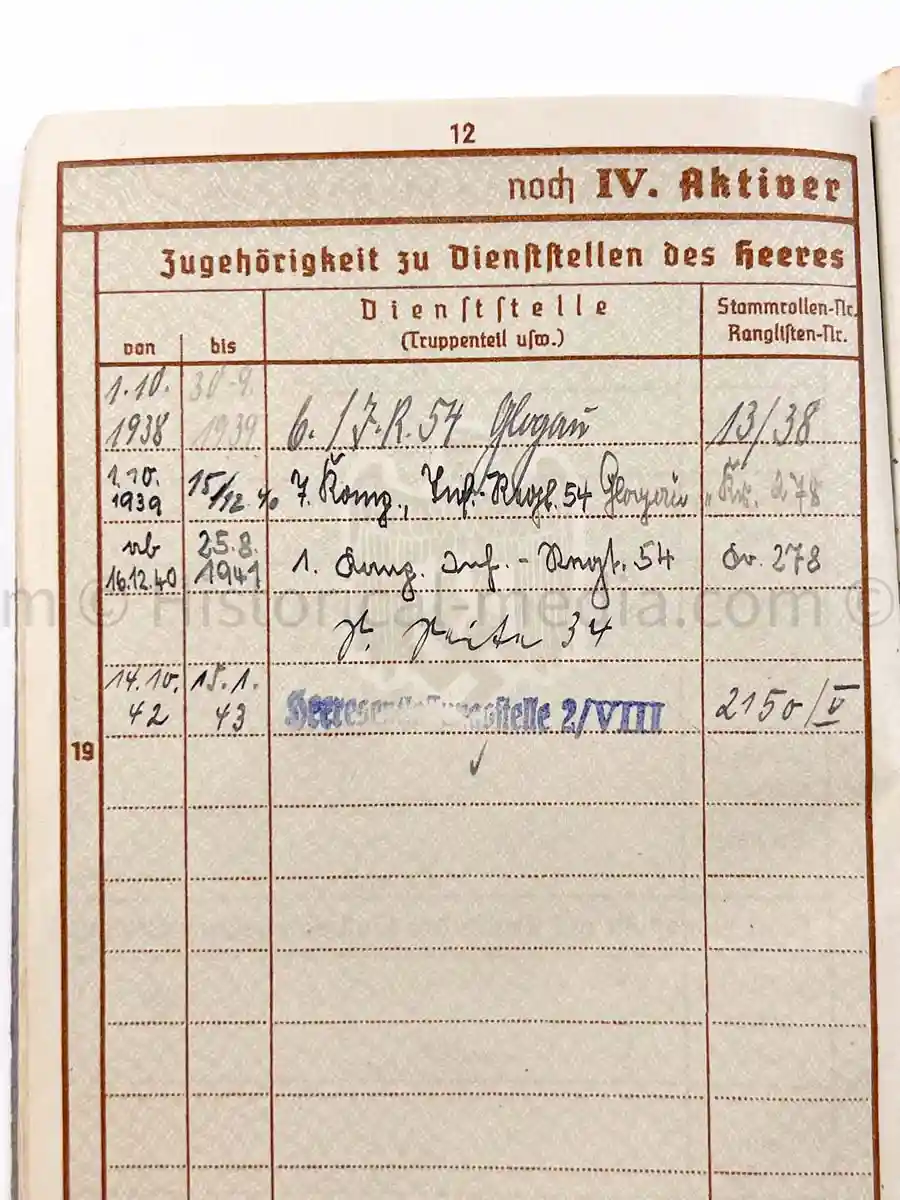 12
noch IV. Aktiver
Zugehörigkeit zu Dienststellen des Heeres
von bis Dienststelle (Truppenteil usw.) Stammrollen-Nr. Ranglisten-Nr.
1.10. 1938 30.9. 1939 6./J.R. 54 Glogau 13/38
1.10. 1939 15/12.40 7. Komp., Inf.-Regt. 54 Glogau 278
ab 16.12.40 25.8. 1941 1. Komp. Inf.-Regt. 54 278
S. Seite 34
14.10. 42 15.1. 43 Heeresentlassungsstelle 2/VIII 2150/V
19
m © Historical-media.com ©